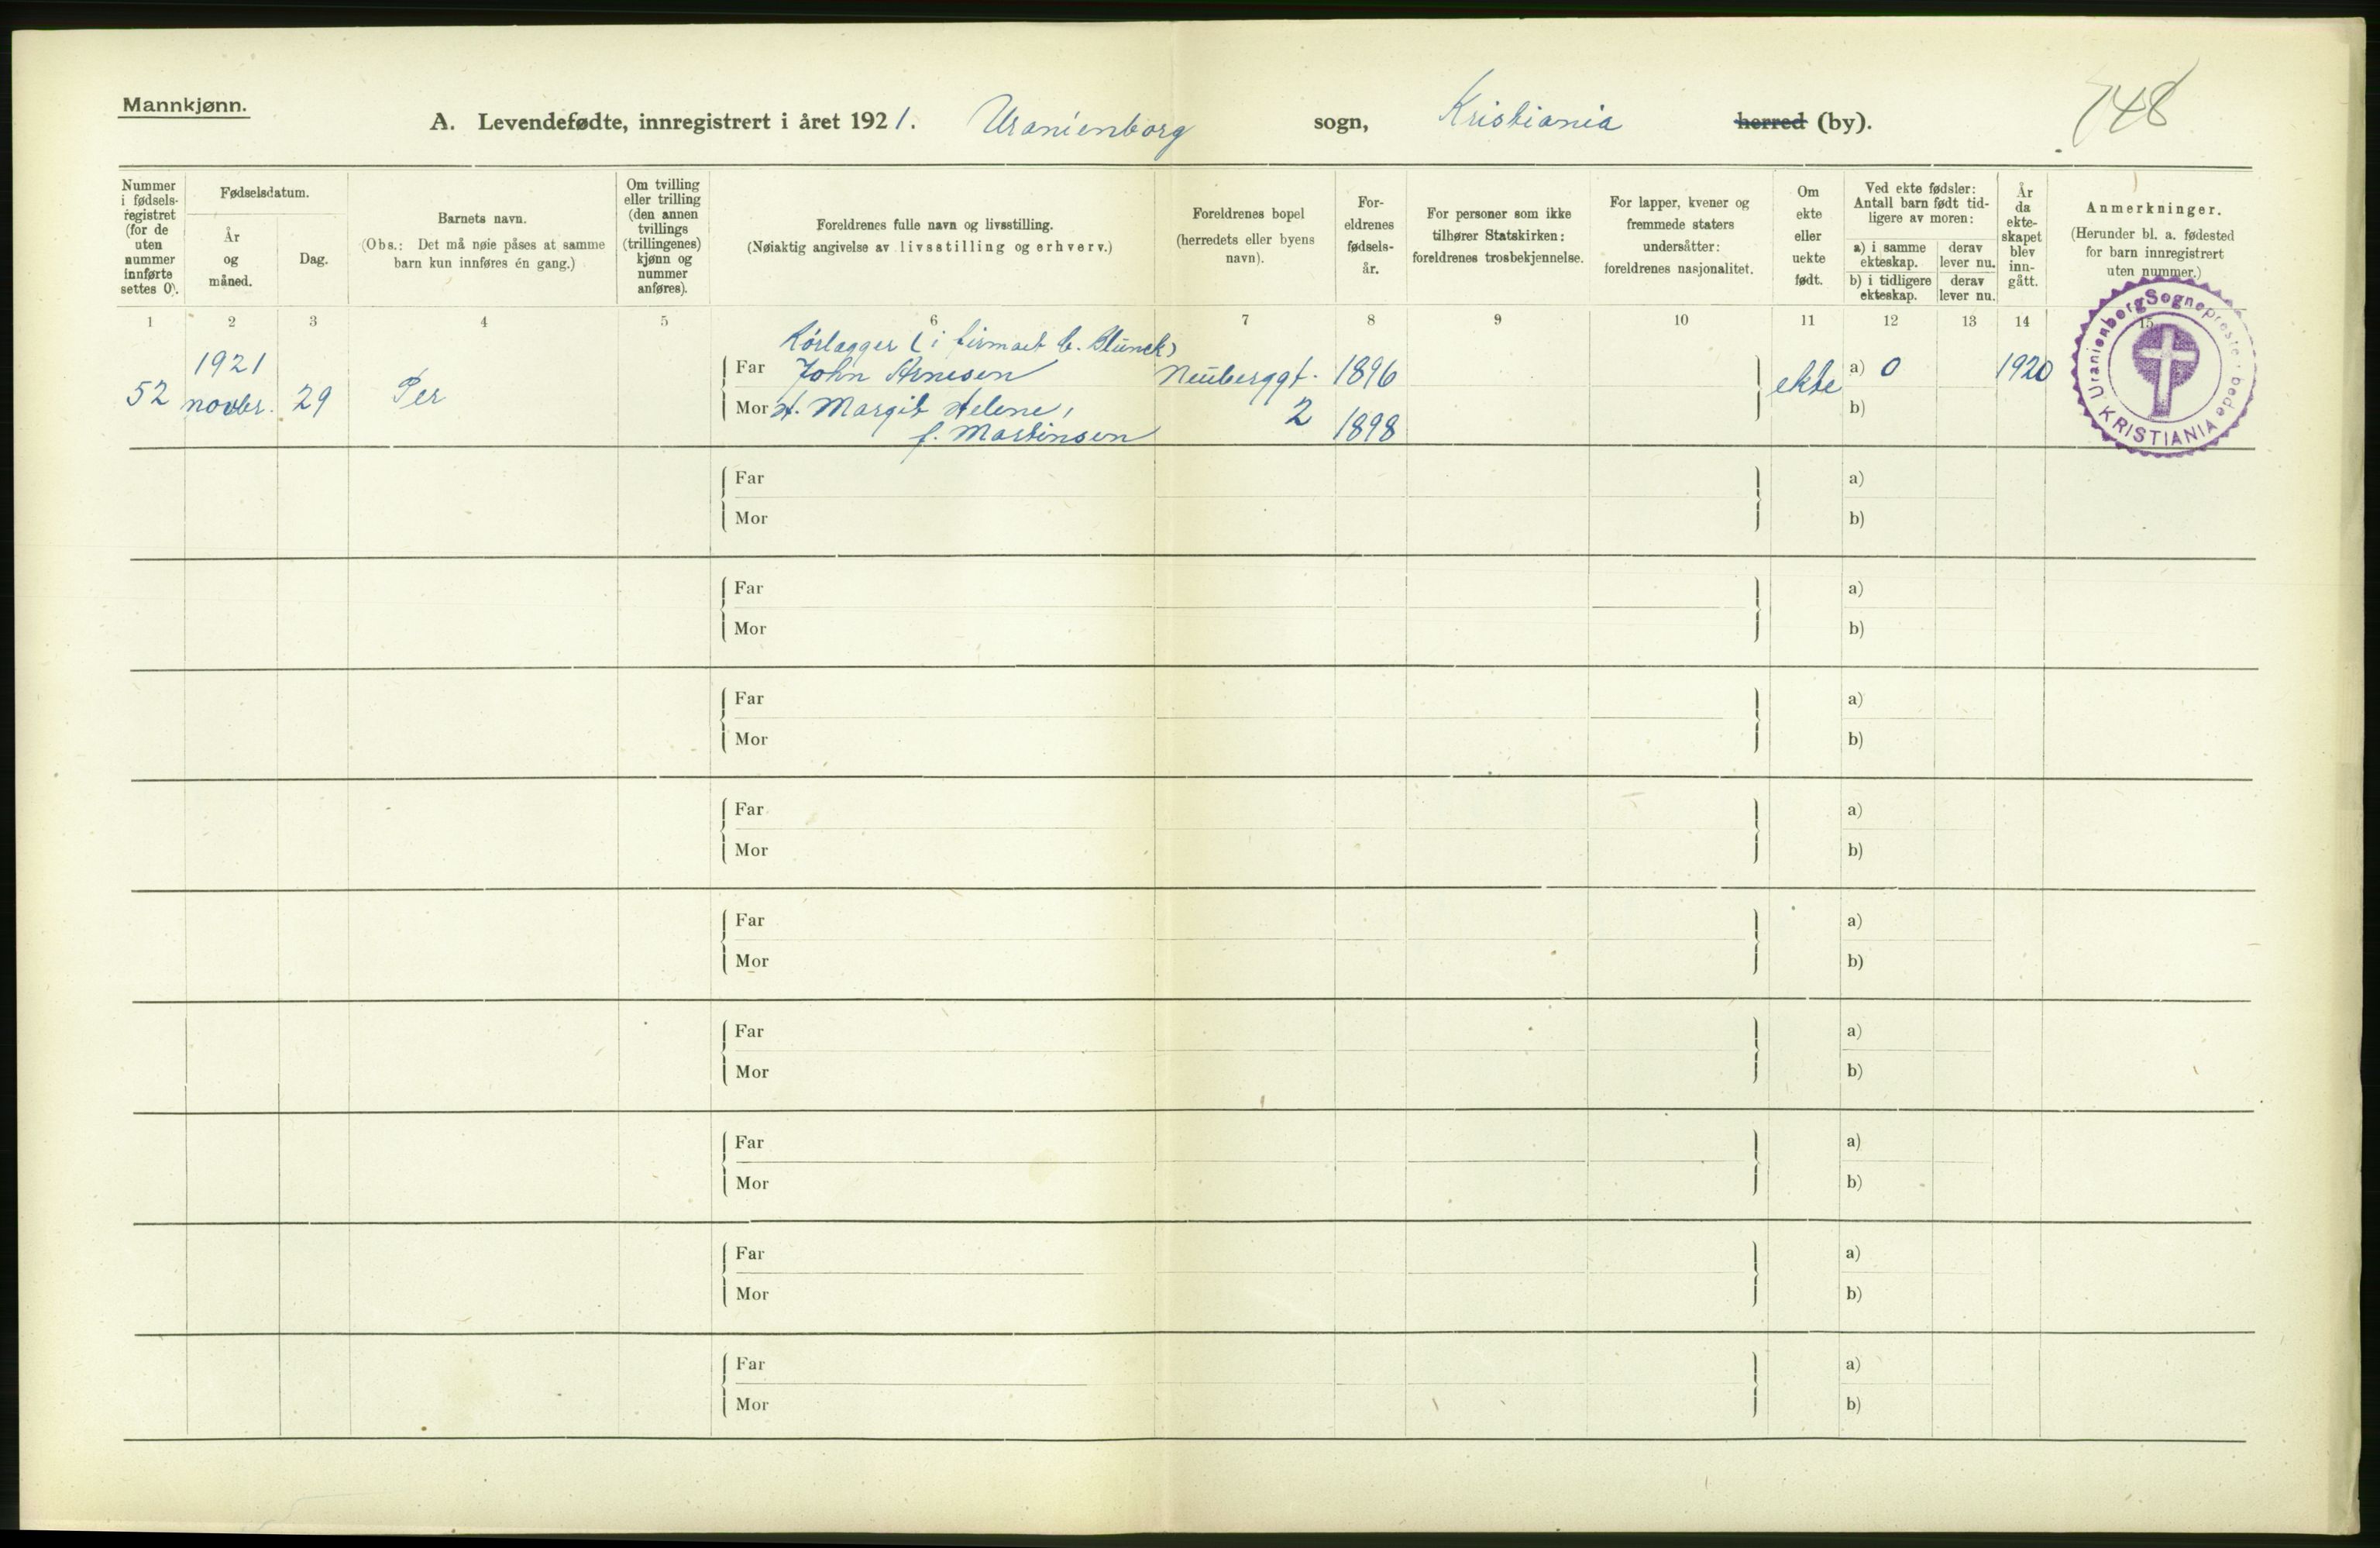 Mannkjønn.
A. Levendefødte, innregistrert i året 1921. Uranienborg sogn, Kristiania herred (by).
748
Nummer i fødsels-registret (for de uten nummer innførte settes 0).
Fødselsdatum.
År og måned.
Dag.
Barnets navn.
(Obs.: Det må nøie påses at samme barn kun innføres én gang.)
Om tvilling eller trilling (den annen tvillings (trillingenes) kjønn og nummer anføres).
Foreldrenes fulle navn og livsstilling.
(Nøiaktig angivelse av livsstilling og erhverv.)
Foreldrenes bopel (herredets eller byens navn).
For-eldrenes fødsels-år.
For personer som ikke tilhører Statskirken: foreldrenes trosbekjennelse.
For lapper, kvener og fremmede staters undersåtter: foreldrenes nasjonalitet.
Om ekte eller uekte født.
Ved ekte fødsler: Antall barn født tid-ligere av moren:
a) i samme ekteskap.
derav lever nu.
b) i tidligere ekteskap.
derav lever nu.
År da ekte-skapet blev inn-gått.
Anmerkninger.
(Herunder bl. a. fødested for barn innregistrert uten nummer.)
1 2 3 4 5 6 7 8 9 10 11 12 13 14 15
Rørlegger (i firmaet C. Blunck)
1921 Far John Arnesen Neuberggt. 1896 ekte a) 0 1920
52 novbr. 29 Per Mor H. Margit Helene, 2 b)
f. Martinsen 1898
Uranienborg Sogneprestembede KRISTIANIA
Far a)
Mor b)
Far a)
Mor b)
Far a)
Mor b)
Far a)
Mor b)
Far a)
Mor b)
Far a)
Mor b)
Far a)
Mor b)
Far a)
Mor b)
Far a)
Mor b)